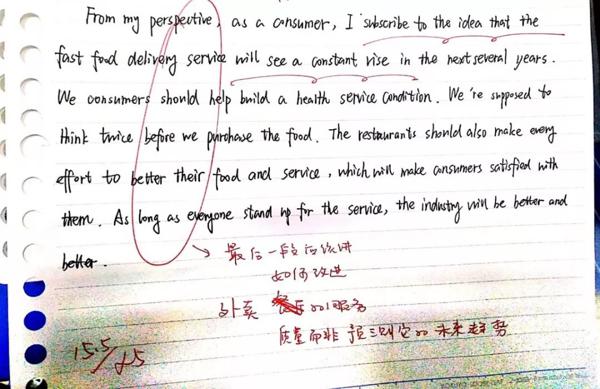 From my perspective, as a consumer, I subscribe to the idea that the
fast food delivery service will see a constant rise in the next several years.
We consumers should help build a health service condition. We're supposed to
think twice before we purchase the food. The restaurants should also make every
effort to better their food and service, which will make consumers satisfied with
them. As long as everyone stand up for the service, the industry will be better and
better.
最后一段应该讲
如何改进
外卖 的服务
质量而非 预测它的未来趋势
15.5/25